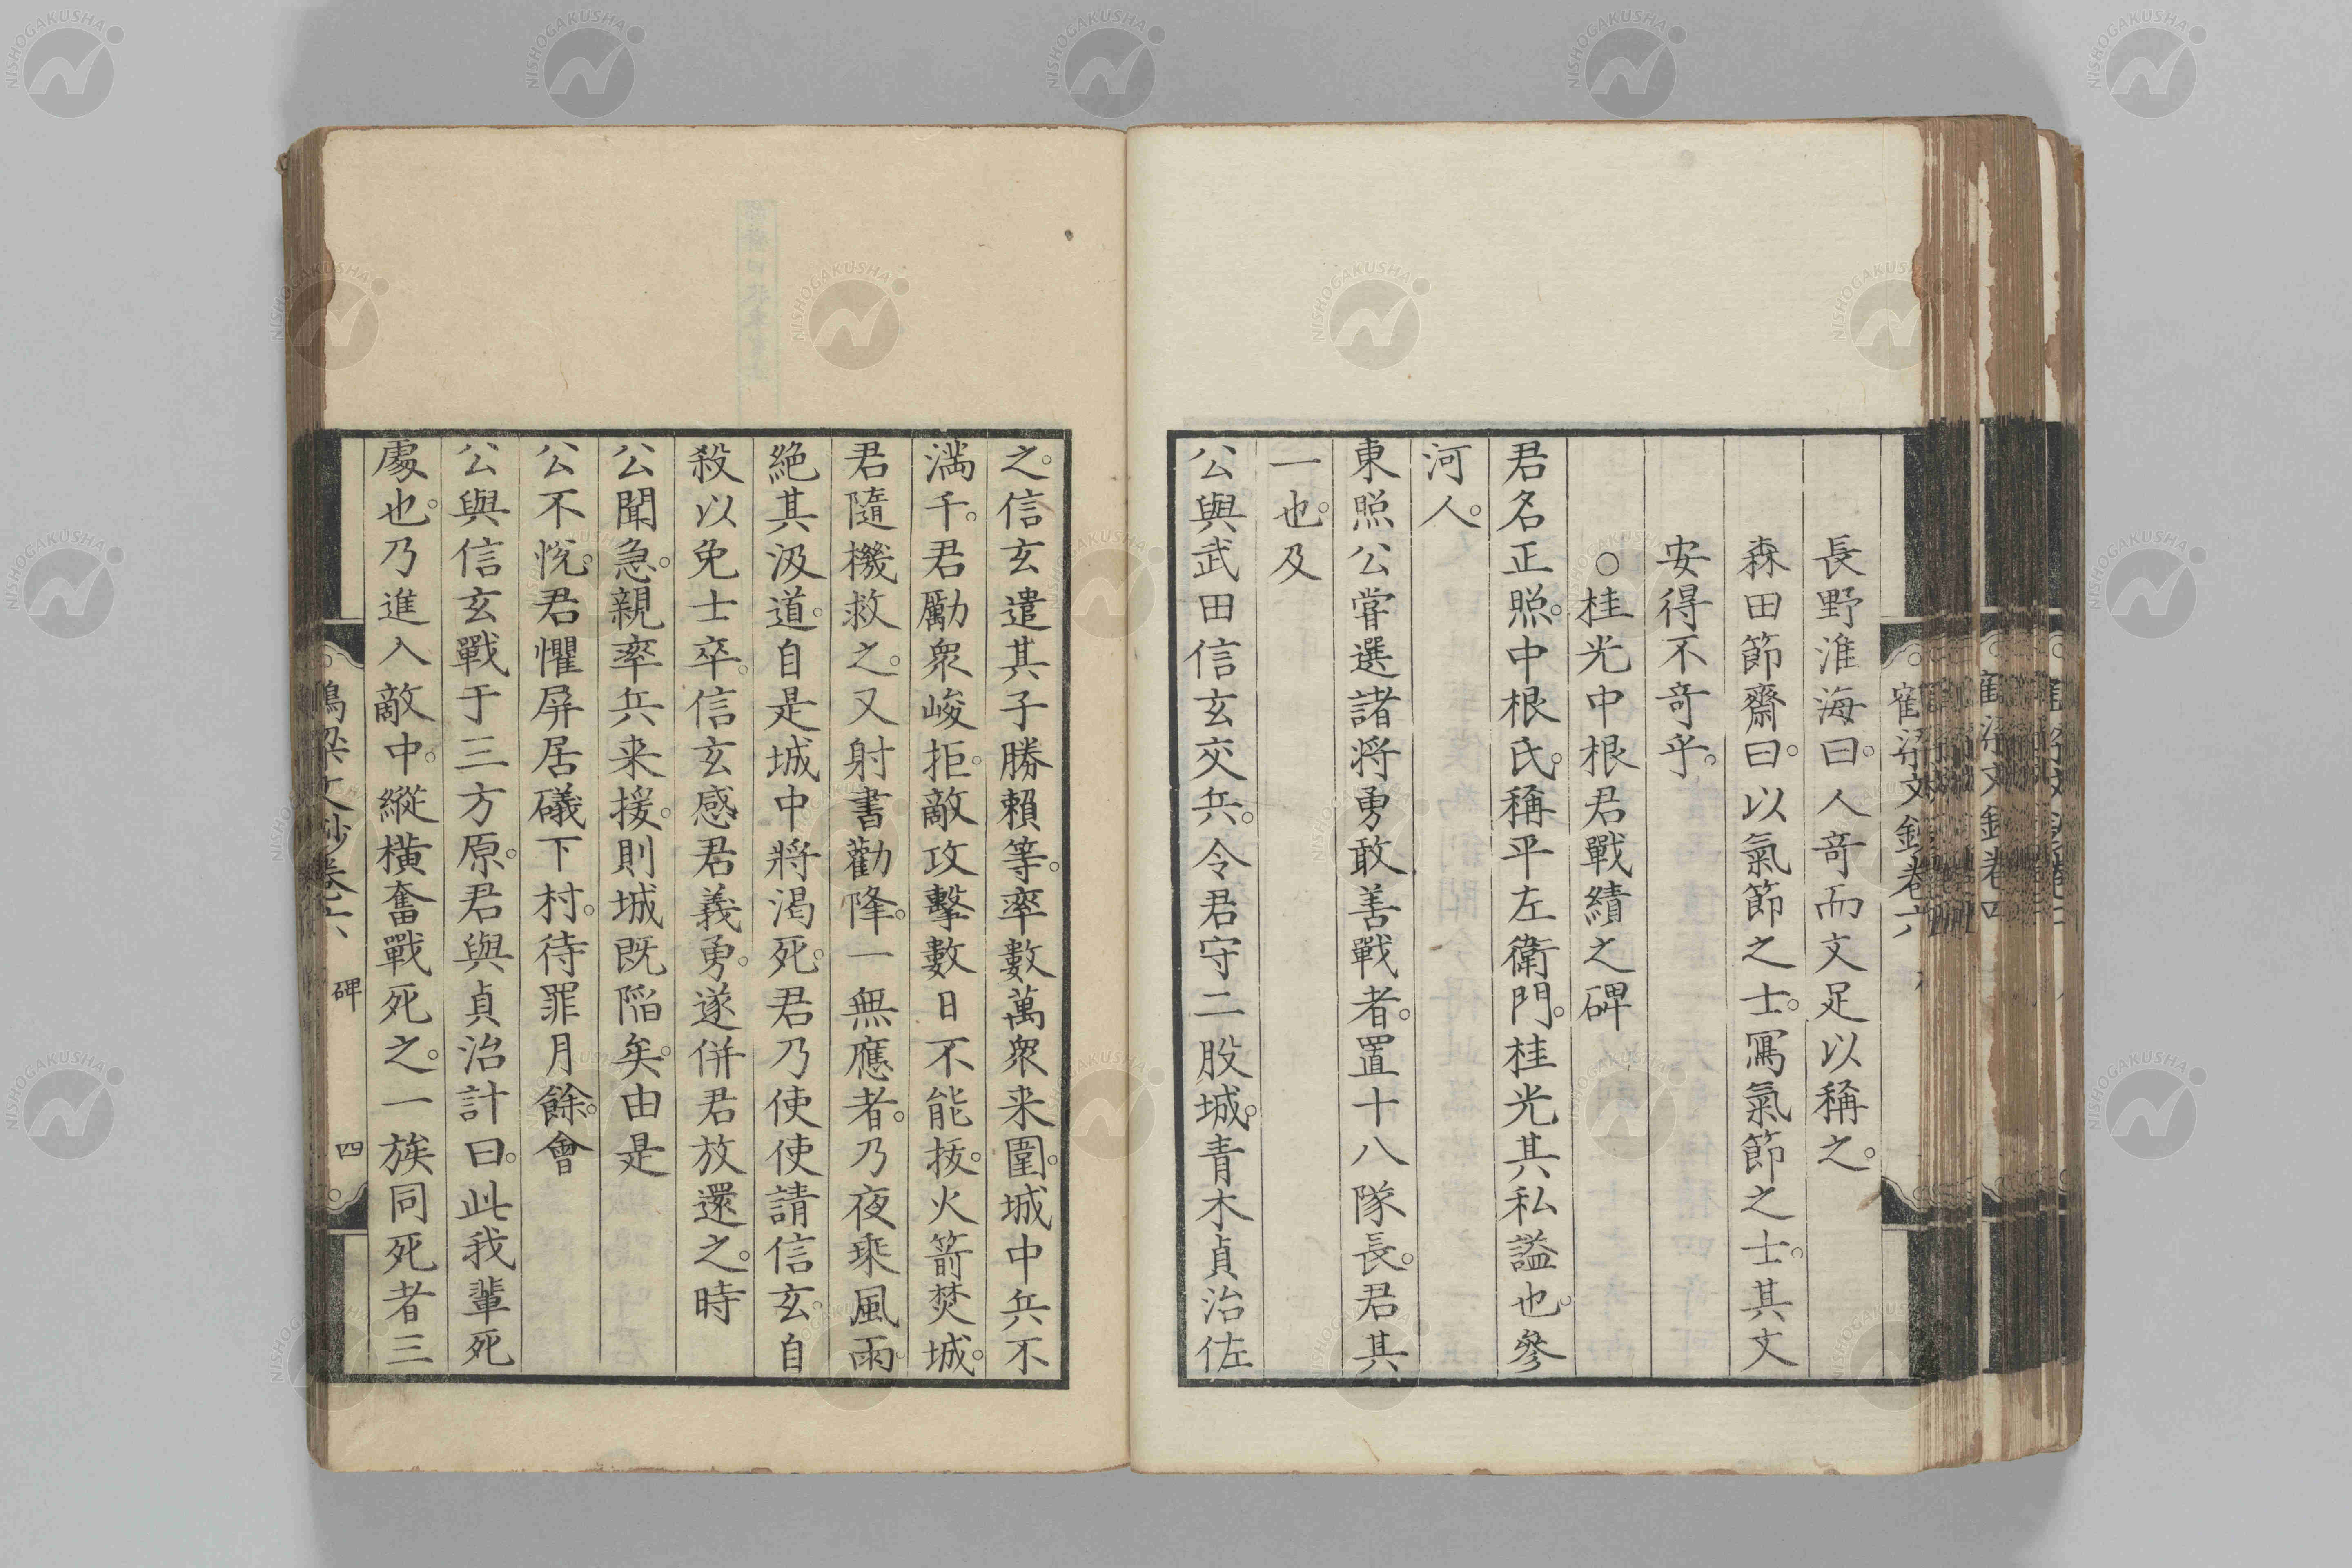 長野淮海曰。人竒而文足以稱之。
森田節齋曰。以氣節之士。寫氣節之士。其文
安得不竒乎。
○桂光中根君戰績之碑
君名正照。中根氏。稱平左衛門。桂光其私謚也。參
河人。
東照公嘗選諸将勇敢善戰者。置十八隊長。君其
一也。及
公與武田信玄交兵。令君守二股城。青木貞治佐
之。信玄遣其子勝賴等。率數萬衆来圍。城中兵不
満千。君勵衆峻拒。敵攻擊數日不能拔。火箭焚城。
君隨機救之。又射書勸降。一無應者。乃夜乗風雨。
絶其汲道。自是城中將渴死。君乃使使請信玄。自
殺以免士卒。信玄感君義勇。遂併君放還之。時
公聞急。親率兵来援。則城既陷矣。由是
公不悦。君懼屏居礒下村。待罪月餘。會
公與信玄戰于三方原。君與貞治計曰。此我輩死
處也。乃進入敵中。縱橫奮戰死之。一族同死者三
碑
四
NISHOGAKUSHA